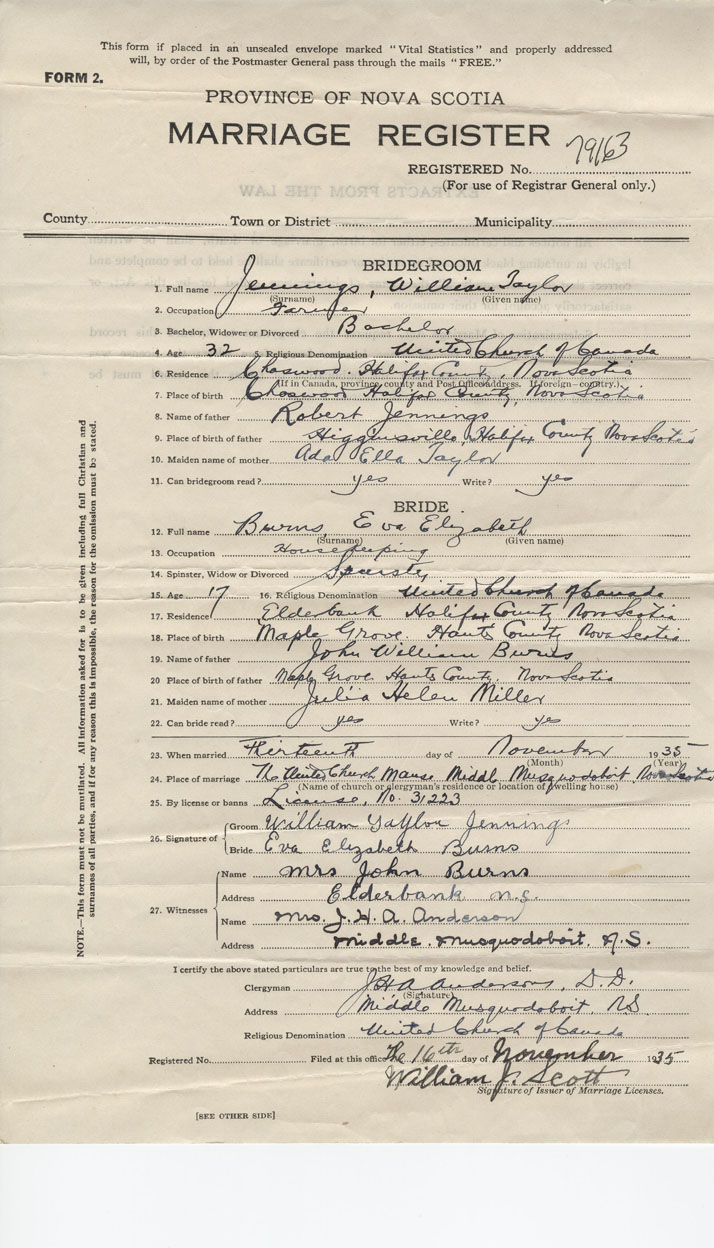 This form if placed in an unsealed envelope marked "Vital Statistics" and properly addressed
will, by order of the Postmaster General pass through the mails "FREE."
FORM 2.
PROVINCE OF NOVA SCOTIA
MARRIAGE REGISTER
79163
REGISTERED No.
(For use of Registrar General only.)
County Town or District Municipality
BRIDEGROOM
1. Full name Jennings, William Taylor
(Surname) (Given name)
2. Occupation Farmer
3. Bachelor, Widower or Divorced Bachelor
4. Age 32 5. Religious Denomination United Church of Canada
6. Residence Chaswood. Halifax County, Nova Scotia
(If in Canada, province, county and Post Office address. If foreign—country.)
7. Place of birth Chaswood Halifax County, Nova Scotia
8. Name of father Robert Jennings
9. Place of birth of father Higginsville, Halifax County Nova Scotia
10. Maiden name of mother Ada Ella Taylor
11. Can bridegroom read? yes Write? yes
BRIDE
12. Full name Burns, Eva Elizabeth
(Surname) (Given name)
13. Occupation Housekeeping
14. Spinster, Widow or Divorced
15. Age 17 16. Religious Denomination United Church of Canada
17. Residence Elderbank Halifax County Nova Scotia
18. Place of birth Maple Grove. Hants County Nova Scotia
19. Name of father John William Burns
20 Place of birth of father Maple Grove. Hants County. Nova Scotia
21. Maiden name of mother Julia Helen Miller
22. Can bride read? yes Write? yes
23. When married Thirteenth day of November 1935
(Month) (Year)
24. Place of marriage The United Church Manse Middle Musquodoboit Nova Scotia
(Name of church or clergyman's residence or location of dwelling house)
25. By license or banns License, No. 31223
26. Signature of Groom William Taylor Jennings
Bride Eva Elizabeth Burns
27. Witnesses
Name Mrs John Burns
Address Elderbank N.S.
Name Mrs. J. H. A. Anderson
Address Middle. Musquodoboit, N.S.
I certify the above stated particulars are true to the best of my knowledge and belief.
Clergyman J H A Anderson, D.D.
(Signature)
Address Middle Musquodoboit, NS
Religious Denomination United Church of Canada
Registered No. Filed at this office The 16th day of November 1935
William J. Scott
Signature of Issuer of Marriage Licenses.
[SEE OTHER SIDE]
NOTE.—This form must not be mutilated. All information asked for is to be given including full Christian and
surnames of all parties, and if for any reason this is impossible, the reason for the omission must be stated.